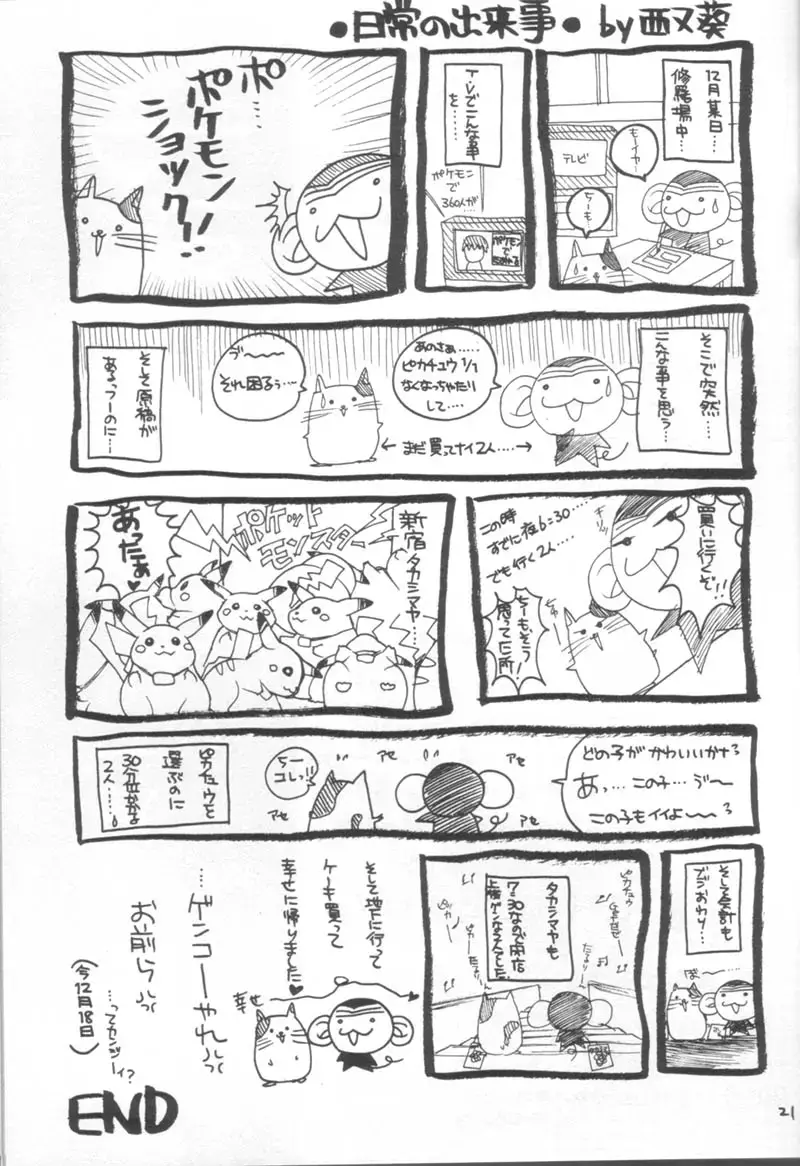 ●日常の出来事● by 西又葵
12月某日…
修羅場中…
もーイヤー
テレビ
ちーも
T.Vでこんな事
を……
ポケモン
で
360人が
ポケモン
で
ポ……
ポケモン
ショック!!
そこで突然…
こんな事を思う…
あのさぁ……
ピカチュウ 1/1
なくなっちゃたり
して……
← まだ買ってナイ2人…… →
ゔ〜〜〜
それ困るぅ…
そして原稿が
あるっつーのに…
買いに行くぞ!!
キリッ
この時
すでに夜6:30…
でも行く2人…
ちーもそう
思ってた所!
新宿タカシマヤ……
ポケット
モンスター
あったぁ♥
どの子が かわいいかな?
あっ… この子… ゔ〜〜
この子もイイよ〜〜?
アセ
アセ
アセ
アセ
ちー
コレっ!!
ピカチュウを
選ぶのに
30分位かかる
2人……
そして会計も
どうおわり…
ば〜……
ピカチュウ
タカシマヤも
7:30なので閉店
上着ゲンなろんでした
そして地下に行って
ケーキ買って
幸せに帰りました♥
幸せ
…ゲンコーやれっっ
お前らっっ
…ってカンジィー?
(今12月18日)
END
21